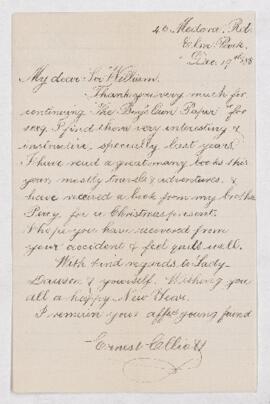 40 Medora Rd.
Elm Park.
Dec. 19th /38
My dear Sir William.
Thank you very much for
continuing "The Boy's Own Paper" for
me, I find them very interesting &
instructive, specially last years.
I have read a great many books this
year, mostly travels & adventures, &
have received a book from my brother
Percy, for a Christmas present.
I hope you have recovered from
your accident & feel quite well.
With kind regards to Lady
& yourself. Wishing you
all a happy New Year.
I remain your affect young friend
Ernest Elliott